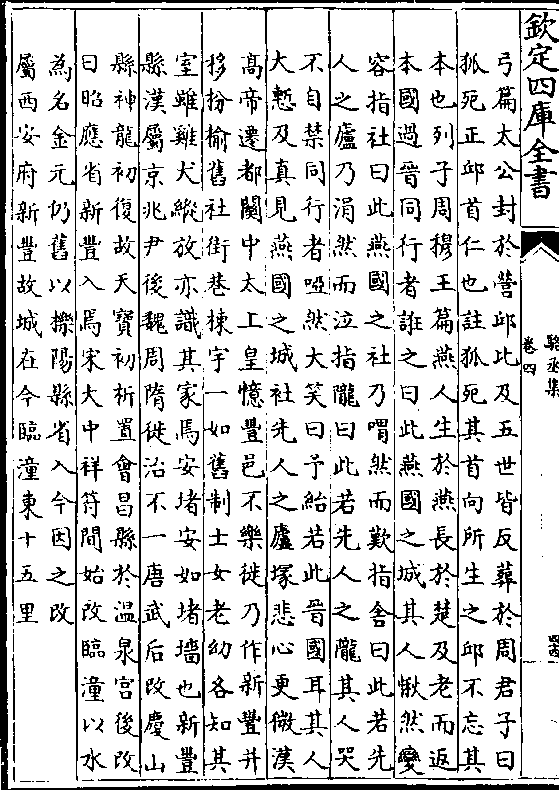 欽定四庫全書
駱丞集
卷四
弓篇太公封於營邱比及五世皆反葬於周君子曰
狐死正邱首仁也註狐死其首向所生之邱不忘其
本也列子周穆王篇燕人生於燕長於楚及老而返
本國過晉同行者誑之曰此燕國之城其人愀然變
容指社曰此燕國之社乃喟然而歎指舍曰此若先
人之廬乃涓然而泣指隴曰此若先人之隴其人哭
不自禁同行者啞然大笑曰予紿若此晉國耳其人
大慙及真見燕國之城社先人之廬塚悲心更微漢
髙帝遷都闗中太上皇憶豐邑不樂徙乃作新豐并
移枌榆舊社街巷棟宇一如舊制士女老幼各知其
室雖雞犬縱放亦識其家焉安堵安如堵墻也新豐
縣漢屬京兆尹後魏周隋徙治不一唐武后改慶山
縣神龍初復故天寶初析置㑹昌縣於温泉宫後改
曰昭應省新豐入焉宋大中祥符間始改臨潼以水
為名金元仍舊以櫟陽縣省入今因之改
屬西安府新豐故城在今臨潼東十五里